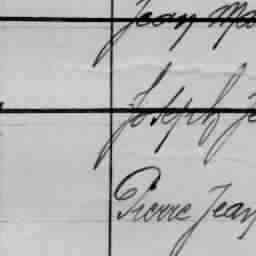 Jean Ma
Joseph Je
Pierre Jean